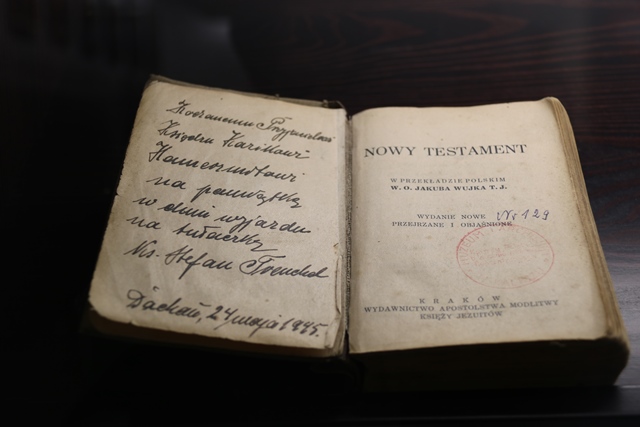 Kochanemu Przyjacielowi
Księdzu Karolkowi
na pamiątkę
w dniu wyjazdu
na tułaczkę
Ks. Stefan
Dachau, 24 maja 1945.
NOWY TESTAMENT
W PRZEKŁADZIE POLSKIM
W. O. JAKUBA WUJKA T. J.
WYDANIE NOWE Nr 129
PRZEJRZANE I OBJAŚNIONE
KRAKÓW
WYDAWNICTWO APOSTOLSTWA MODLITWY
KSIĘŻY JEZUITÓW